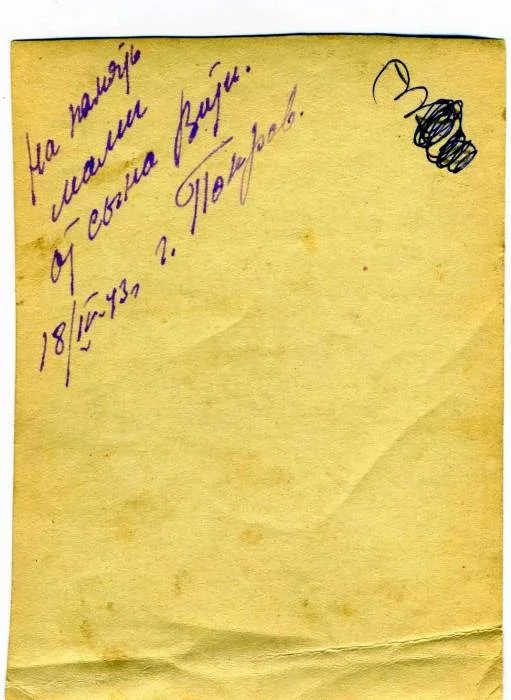 На память
мамы
от сына Вити.
18/IV-43г г. Покров.